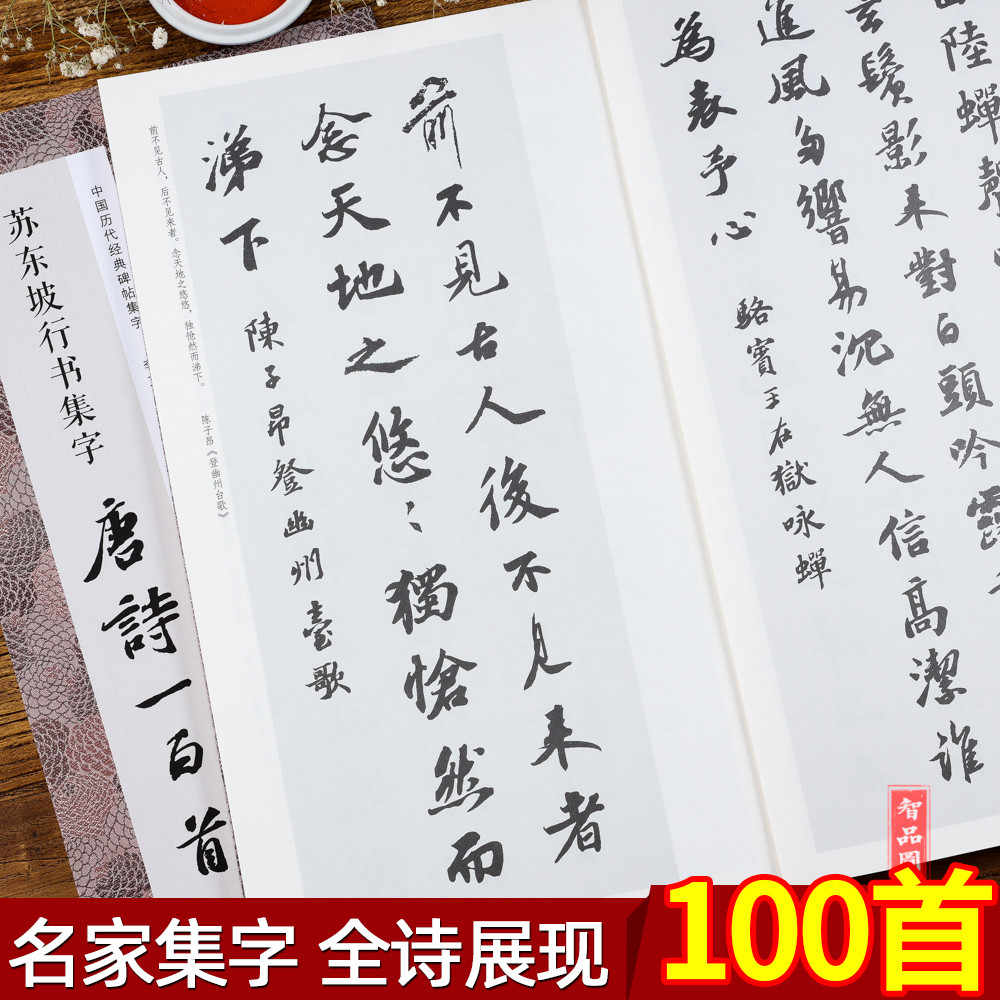 陸蟬聲
玄鬢影来對白頭吟露
進風多響易沉無人信高潔誰
為表予心
駱賓王在獄咏蟬
前不見古人後不見来者
念天地之悠〻獨愴然而
涕下
陳子昂登幽州臺歌
前不见古人，后不见来者。念天地之悠悠，独怆然而涕下。 陈子昂《登幽州台歌》
中国历代经典碑帖集字
苏东坡行书集字
唐詩一百首
智品圖
名家集字 全诗展现
100首